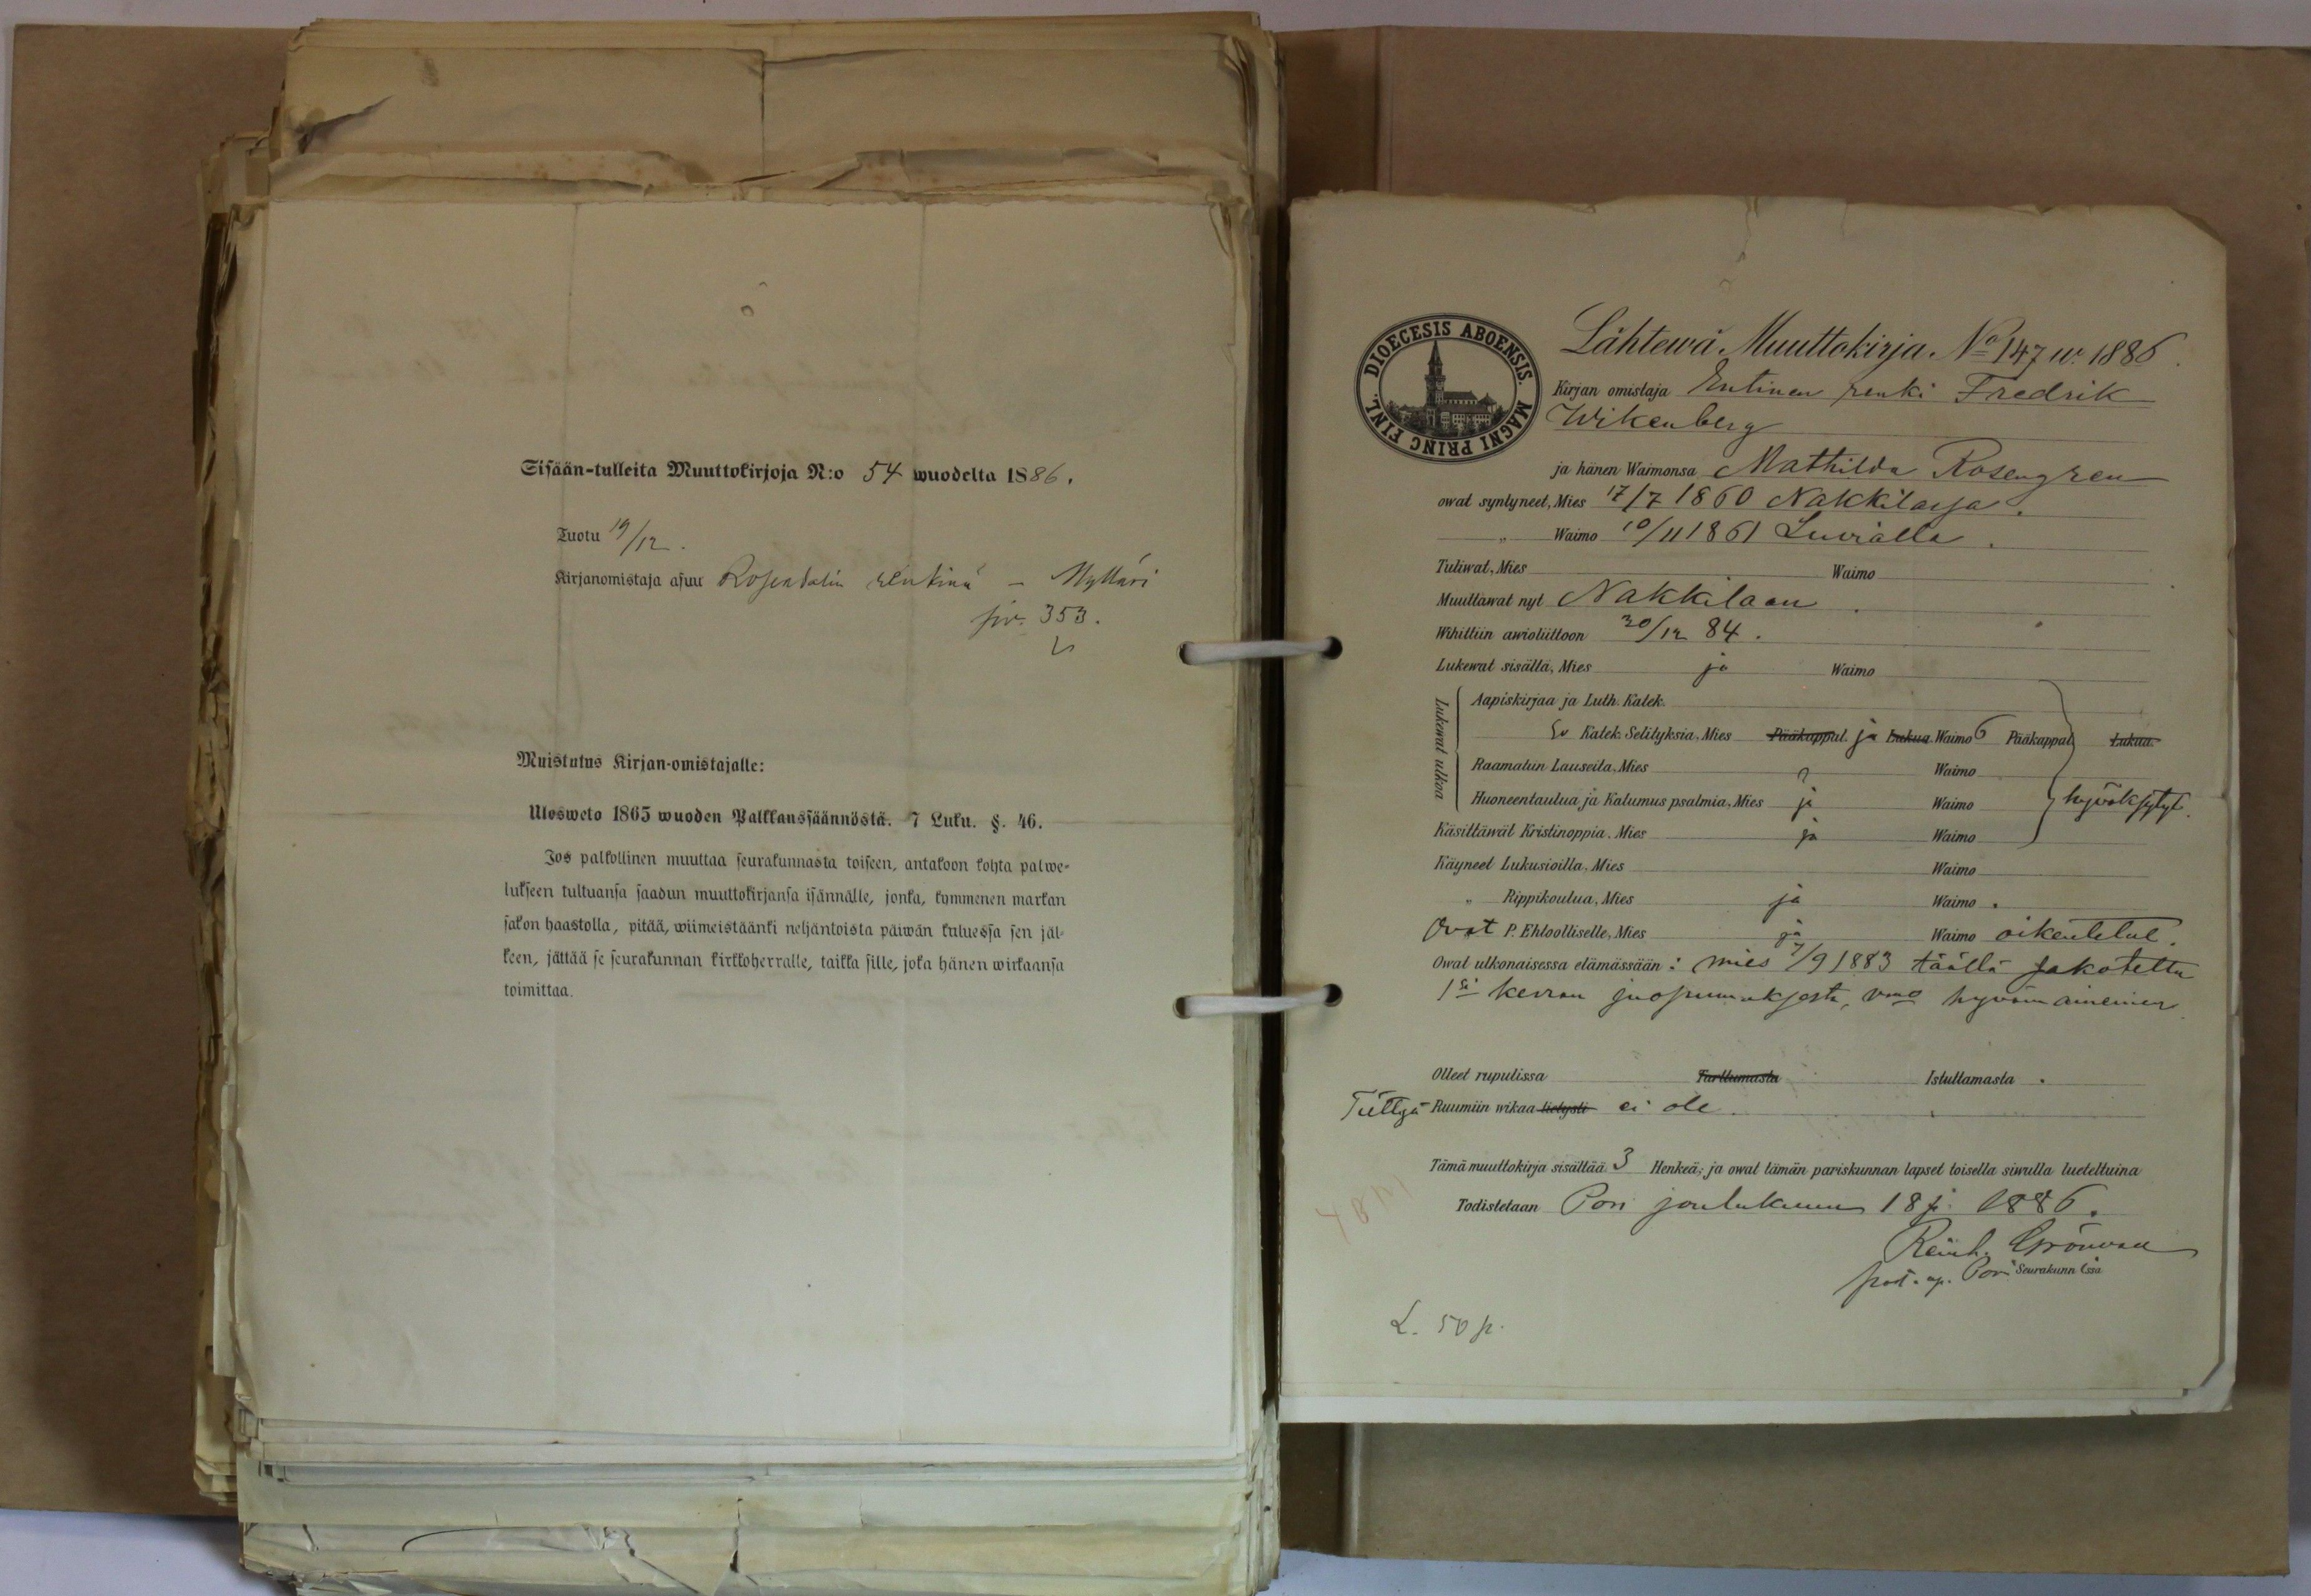 Sisään-tulleita Muuttokirjoja N:o 54 wuodelta 1886.
Tuotu 19/12.
Kirjanomistaja asuu Rosendalin renkinä – Mylläri
siv. 353.
Muistutus Kirjan-omistajalle:
Ulosweto 1865 wuoden Palkkanssäännöstä. 7 Luku. §. 46.
Jos palkollinen muuttaa seurakunnasta toiseen, antakoon kohta palwe-
lukseen tultuansa saadun muuttokirjansa isännälle, jonka, kymmenen markan
sakon haastolla, pitää, wiimeistäänki neljäntoista päiwän kuluessa sen jäl-
keen, jättää se seurakunnan kirkkoherralle, taikka sille, joka hänen wirkaansa
toimittaa.
DIOECESIS ABOENSIS. MAGNI PRINC FINL.
Lähtewä Muuttokirja. No 147 w. 1886.
Kirjan omistaja Entinen renki Fredrik
Wikenberg
ja hänen Waimonsa Mathilda Rosengren
owat syntyneet, Mies 17/7 1860 Nakkilassa.
„ Waimo 10/11 1861 Luvialla.
Tuliwat, Mies Waimo
Muuttawat nyt Nakkilaan.
Wihittiin awioliittoon 30/12 84.
Lukewat sisältä, Mies ja Waimo
Lukewat ulkoa
Aapiskirjaa ja Luth. Katek.
Sv Katek. Selityksiä, Mies Pääkappal. ja Lukua Waimo 6 Pääkappal. Lukua.
Raamatun Lauseita, Mies ? Waimo
Huoneentaulua ja Katumus psalmia, Mies ja Waimo hyväksytyt.
Käsittäwät Kristinoppia. Mies ja Waimo
Käyneet Lukusioilla, Mies Waimo
„ Rippikoulua, Mies ja Waimo
Ovat P. Ehtoolliselle, Mies ja Waimo oikeutetut.
Owat ulkonaisessa elämässään: mies 7/9 1883 täällä sakotettu
1si kerran juopumuksesta, vmo hyvänmaineinen
Olleet rupulissa Tarttumasta Istuttamasta
Tiettyä Ruumiin wikaa tietysti ei ole.
Tämä muuttokirja sisältää 3 Henkeä; ja owat tämän pariskunnan lapset toisella siwulla lueteltuina
Todistetaan Pori joulukuun 18 p. 1886.
Reinh. Grönvall
past. ap. Pori Seurakunn Issa
L. 50 p.